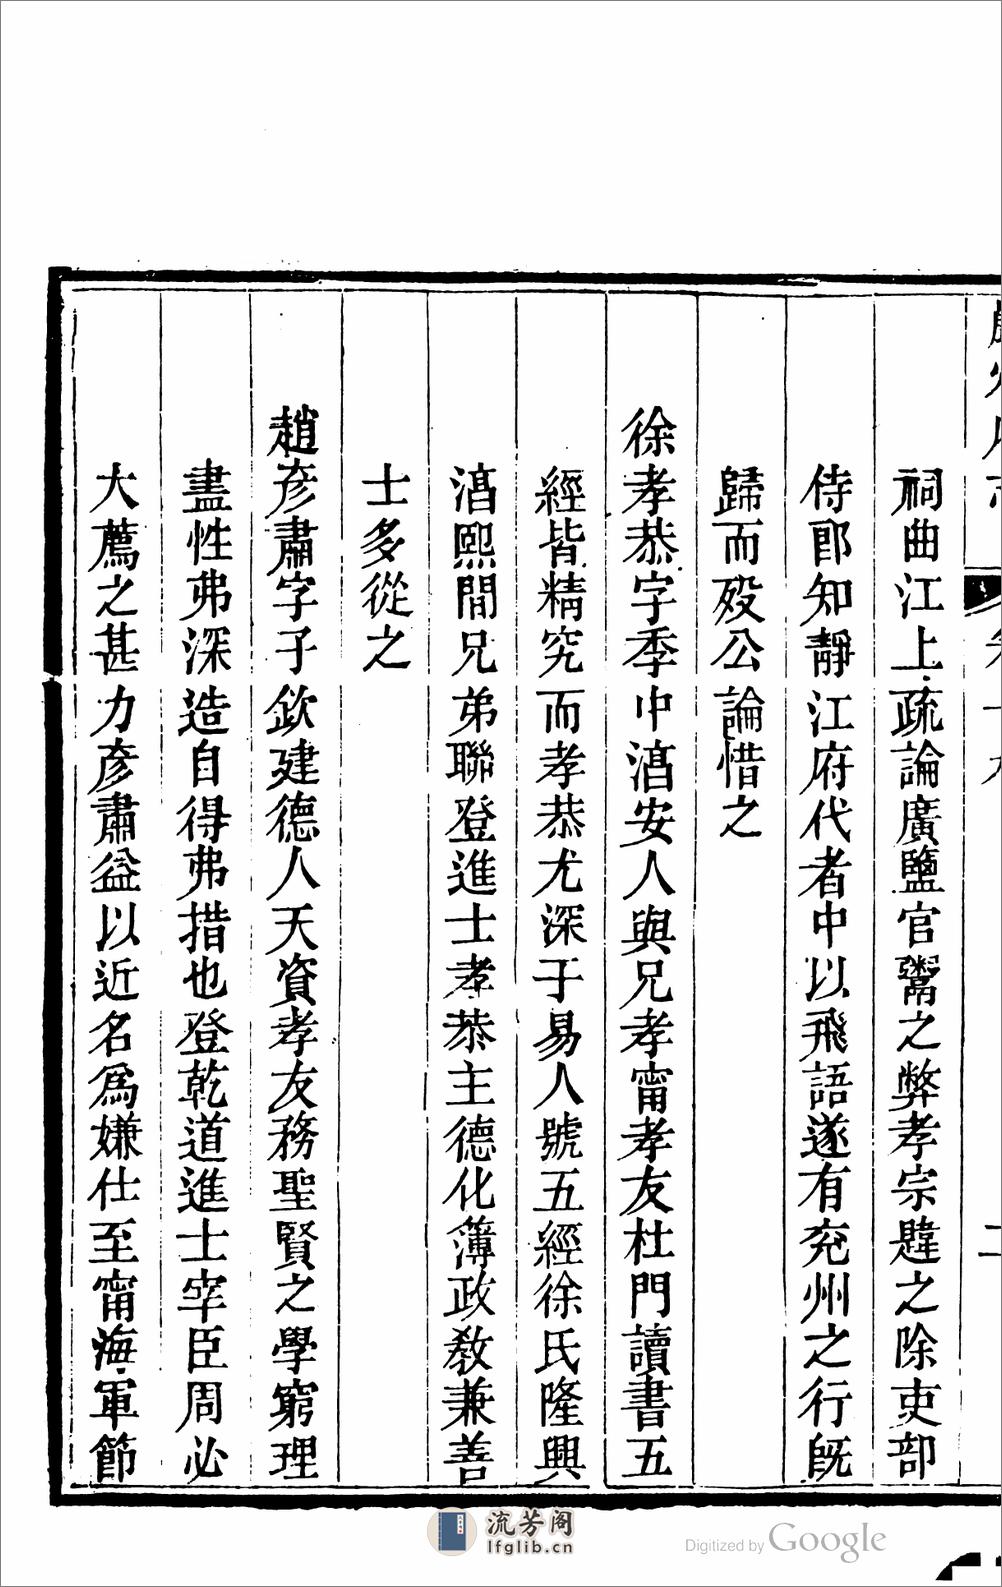 祠曲江上疏論廣鹽官鬻之弊孝宗韙之除吏部
侍郎知靜江府代者中以飛語遂有兖州之行旣
歸而歿公論惜之
徐孝恭字季中湻安人與兄孝甯孝友杜門讀書五
經皆精究而孝恭尤深于易人號五經徐氏隆興
湻熙間兄弟聯登進士孝恭主德化簿政敎兼善
士多從之
趙彥肅字子欽建德人天資孝友務聖賢之學窮理
盡性弗深造自得弗措也登乾道進士宰臣周必
大薦之甚力彥肅益以近名爲嫌仕至甯海軍節
二
流芳阁
lfglib.cn
Digitized by Google